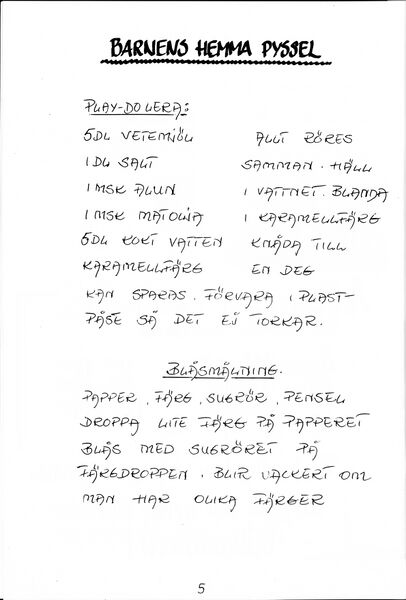 BARNENS HEMMA PYSSEL
PLAY-DO LERA:
5DL VETEMJÖL
1DL SALT
1MSK ALUN
1MSK MATOLJA
5DL KOKT VATTEN
KARAMELLFÄRG
ALLT RÖRES
SAMMAN. HÄLL
I VATTNET. BLANDA
I KARAMELLFÄRG
KNÅDA TILL
EN DEG
KAN SPARAS. FÖRVARA I PLAST-
PÅSE SÅ DET EJ TORKAR.
BLÅSMÅLNING.
PAPPER, FÄRG, SUGRÖR, PENSEL
DROPPA LITE FÄRG PÅ PAPPERET
BLÅS MED SUGRÖRET PÅ
FÄRGDROPPEN. BLIR VACKERT OM
MAN HAR OLIKA FÄRGER
5